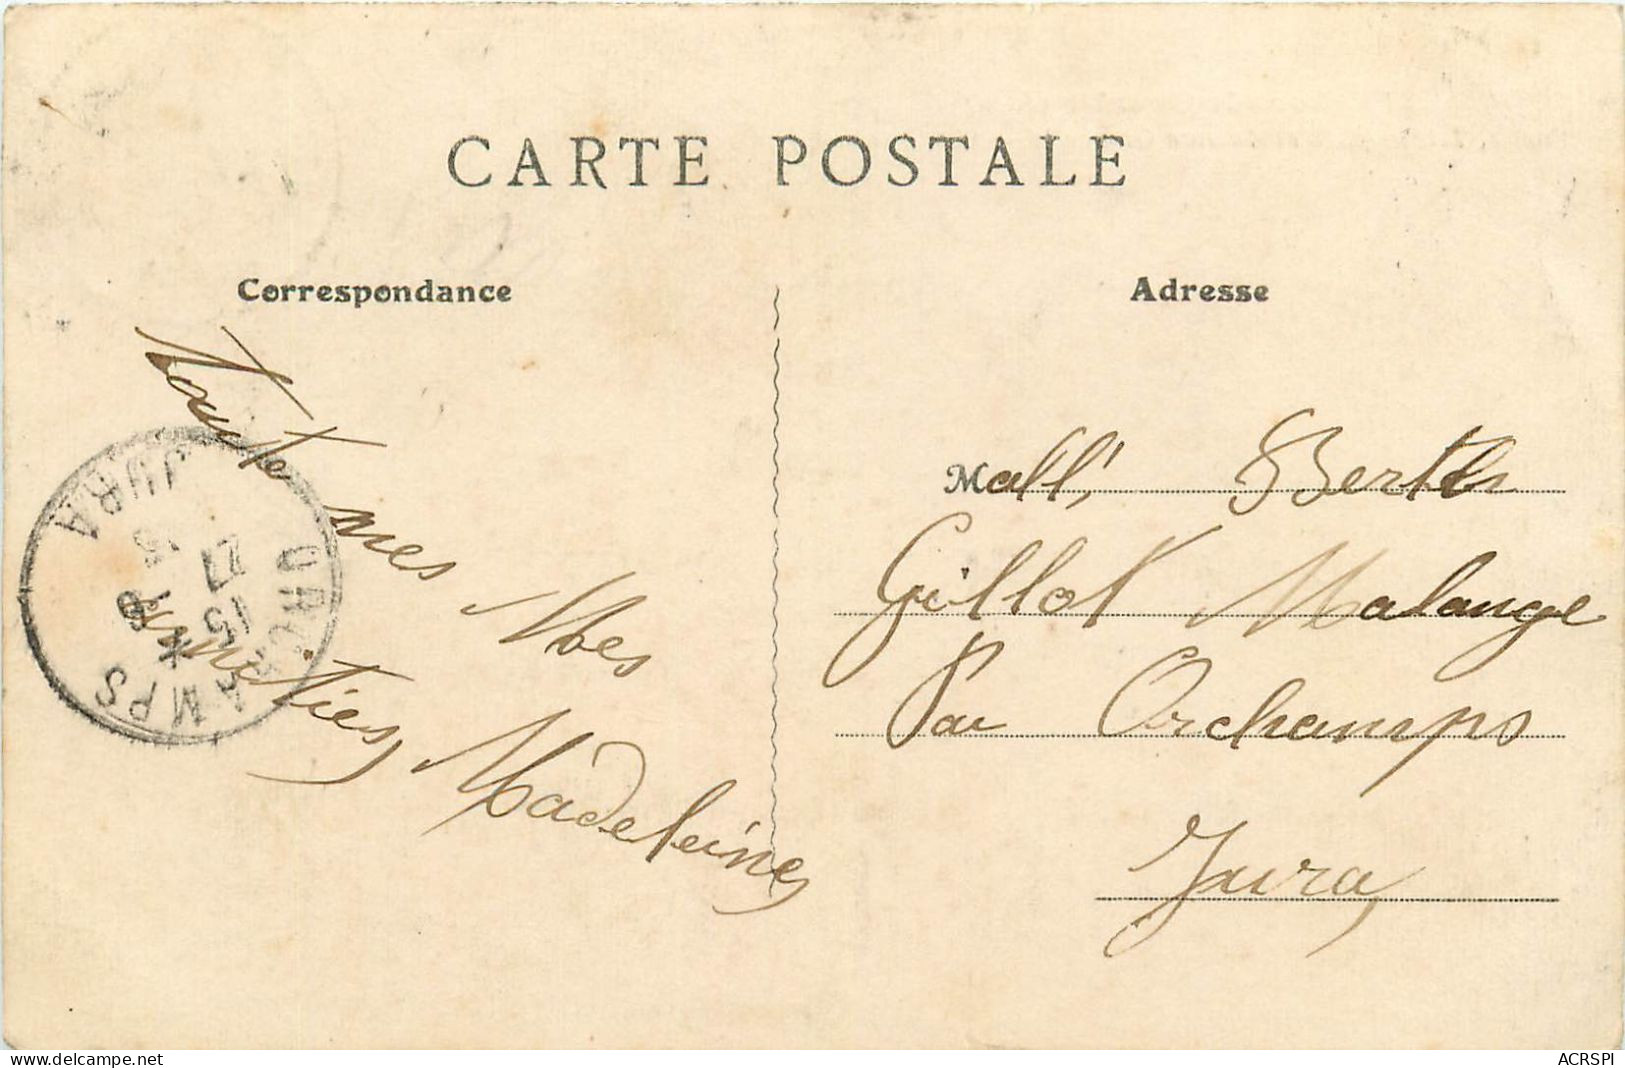 CARTE POSTALE
Correspondance
Adresse
Toute mes
Mes
amitiés
Madeleine
Mall, Berthe
Gillot Malange
Par Orchamps
Jura
ORCHAMPS
JURA
15
27
website: www.delcampe.net
ACRSPI